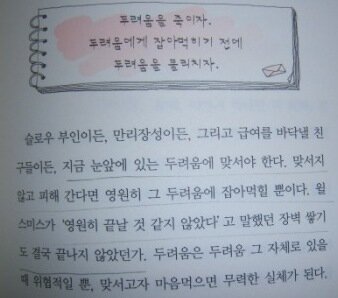 두려움을 죽이자.
두려움에게 잡아먹히기 전에
두려움을 물리치자.
슬로우 부인이든, 만리장성이든, 그리고 급여를 바닥낼 친
구들이든, 지금 눈앞에 있는 두려움에 맞서야 한다. 맞서지
않고 피해 간다면 영원히 그 두려움에 잡아먹힐 뿐이다. 윌
스미스가 '영원히 끝날 것 같지 않았다'고 말했던 장벽 쌓기
도 결국 끝나지 않았던가. 두려움은 두려움 그 자체로 있을
때 위협적일 뿐, 맞서고자 마음먹으면 무력한 실체가 된다.